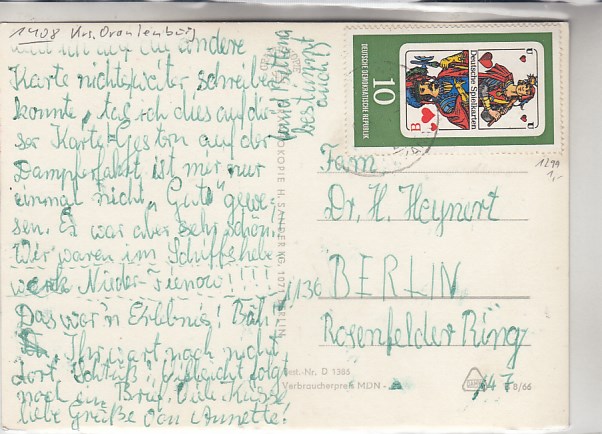 1408 Krs. Oranienburg
und ich auf die andere
Karte nichts später schreiben
konnte, tag ich dies auf die-
ser Karte. Gestern auf der
Dampferfahrt ist mir nur
einmal nicht „Gut" gewe-
sen. Es war aber sehr schön.
Wir waren im Schiffshebe
werk Nieder-Finow!!!!
Das war'n Erlebnis! Bah!
Ihr wart noch nicht
dort. Schluß! Vielleicht folgt
noch ein Brief. Viele Küsse
liebe Grüße von Annette!
und
bestimmt
auch!
DEUTSCHE DEMOKRATISCHE REPUBLIK
10
Deutsche Spielkarten
U
U
B
1299
1,-
Fam
Dr. H. Heynert
1136 BERLIN
Rosenfelder Ring
147
H. SANDER KG, 1071 BERLIN
Best.-Nr. D 1386
Verbraucherpreis MDN
8/66